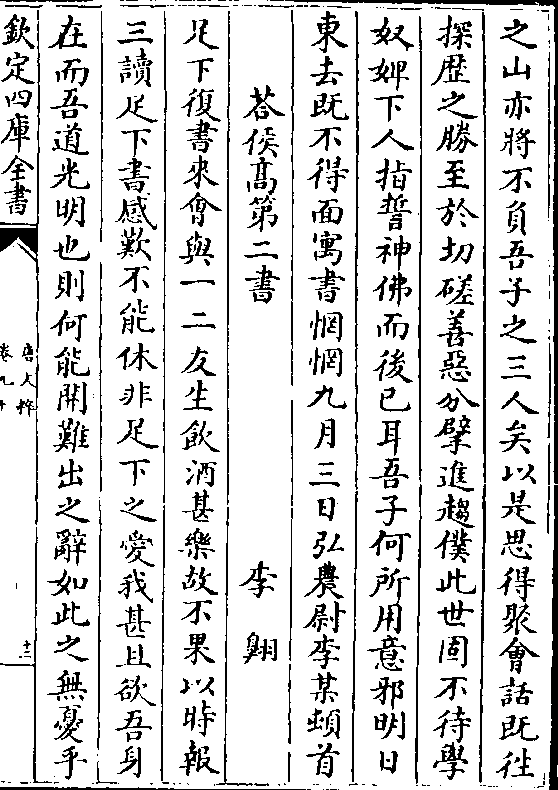 之山亦將不負吾子之三人矣以是思得聚會話既徃
探歴之勝至於切磋善惡分擘進趨僕此世固不待學
奴婢下人指誓神佛而後已耳吾子何所用意邪明日
東去既不得面寓書惘惘九月三日弘農尉李某頓首
荅侯髙第二書 李翺
足下復書來㑹與一二友生飲酒甚樂故不果以時報
三讀足下書感歎不能休非足下之愛我甚且欲吾身
在而吾道光明也則何能開難出之辭如此之無憂乎
欽定四庫全書
唐文粹
卷九十
十二